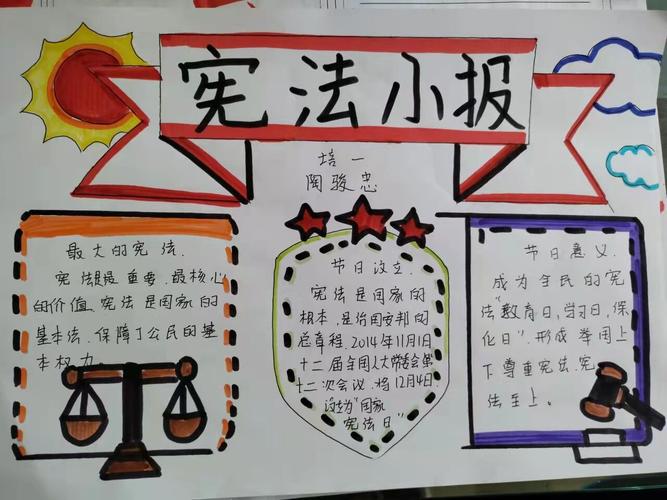 宪法小报
培一
陶骏忠
最大的宪法.
宪法是最重要.最核心
的价值.宪法是国家的
基本法.保障了公民的基
本权力.
节日设立.
宪法是国家的
根本,是治国安邦的
总章程.2014年11月1日
十二届全国人大常委会第
十二次会议.将12月4日
设立为"国家
宪法日"
节日意义.
成为全民的宪
法"教育日,学习日,保
化日".形成举国上
下尊重宪法.宪
法至上。